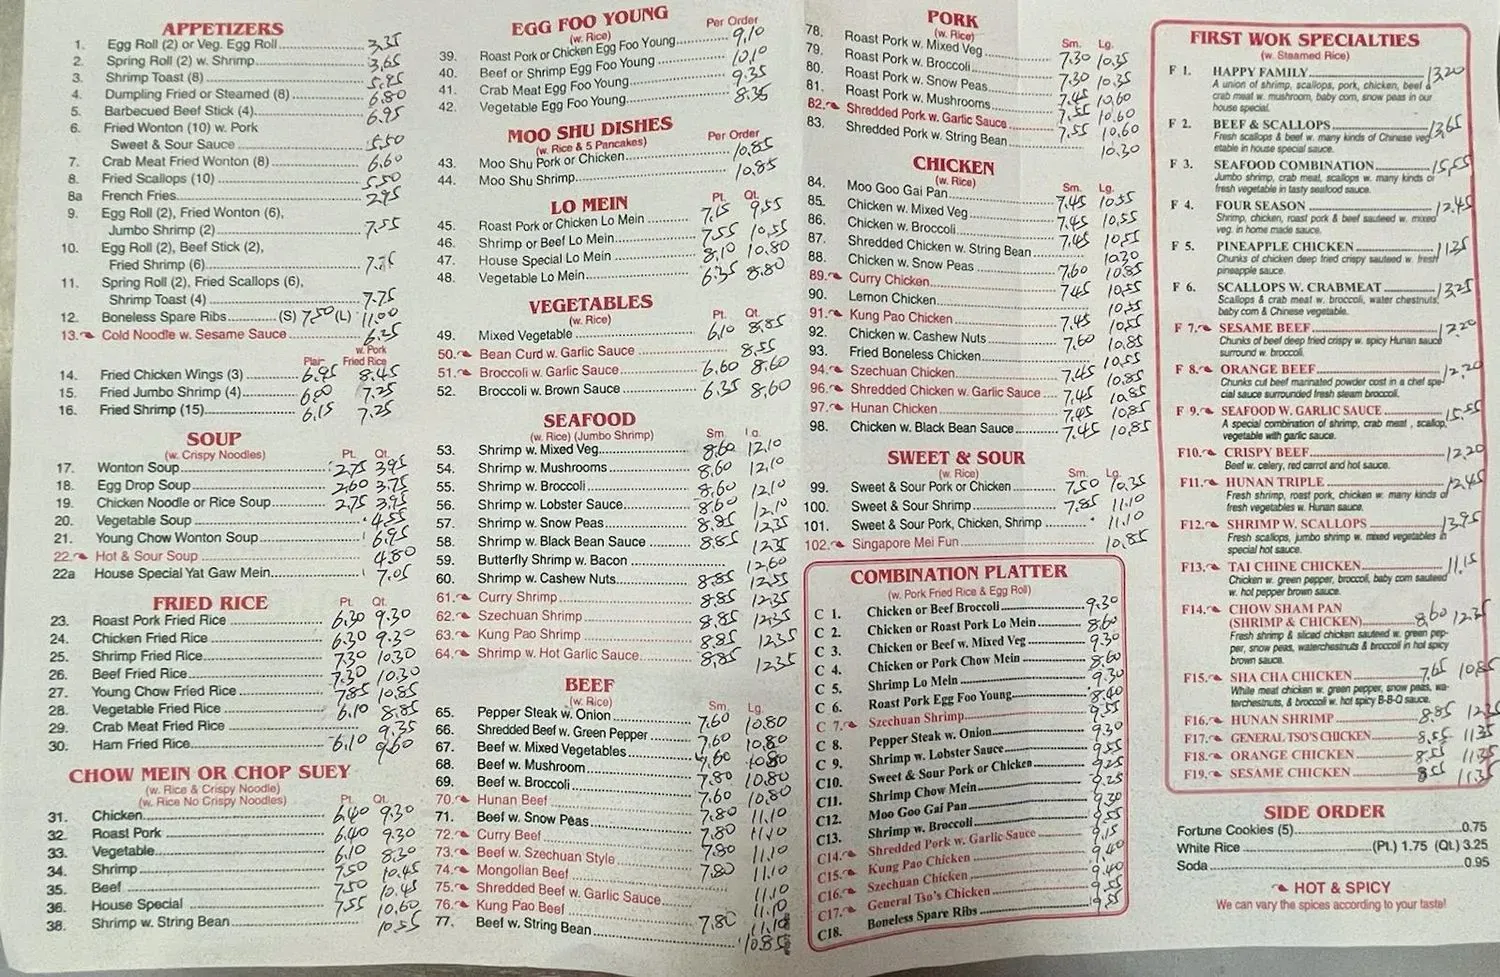 APPETIZERS
1. Egg Roll (2) or Veg. Egg Roll 3.35
2. Spring Roll (2) w. Shrimp 3.65
3. Shrimp Toast (8) 5.85
4. Dumpling Fried or Steamed (8) 6.80
5. Barbecued Beef Stick (4) 6.95
6. Fried Wonton (10) w. Pork
Sweet & Sour Sauce 5.50
7. Crab Meat Fried Wonton (8) 6.60
8. Fried Scallops (10) 5.50
8a French Fries 2.95
9. Egg Roll (2), Fried Wonton (6),
Jumbo Shrimp (2) 7.55
10. Egg Roll (2), Beef Stick (2),
Fried Shrimp (6) 7.75
11. Spring Roll (2), Fried Scallops (6),
Shrimp Toast (4) 7.75
12. Boneless Spare Ribs (S) 7.50 (L) 11.00
13. Cold Noodle w. Sesame Sauce 6.25
Plain w. Pork Fried Rice
14. Fried Chicken Wings (3) 6.95 8.45
15. Fried Jumbo Shrimp (4) 6.00 7.25
16. Fried Shrimp (15) 6.15 7.25
SOUP
(w. Crispy Noodles) Pt. Qt.
17. Wonton Soup 2.75 3.95
18. Egg Drop Soup 2.60 3.75
19. Chicken Noodle or Rice Soup 2.75 3.95
20. Vegetable Soup 4.55
21. Young Chow Wonton Soup 6.95
22. Hot & Sour Soup 4.80
22a House Special Yat Gaw Mein 7.05
FRIED RICE Pt. Qt.
23. Roast Pork Fried Rice 6.30 9.30
24. Chicken Fried Rice 6.30 9.30
25. Shrimp Fried Rice 7.30 10.30
26. Beef Fried Rice 7.30 10.30
27. Young Chow Fried Rice 7.85 10.85
28. Vegetable Fried Rice 6.10 8.85
29. Crab Meat Fried Rice 9.35
30. Ham Fried Rice 6.10 9.60
CHOW MEIN OR CHOP SUEY
(w. Rice & Crispy Noodle)
(w. Rice No Crispy Noodles) Pt. Qt.
31. Chicken 6.40 9.30
32. Roast Pork 6.40 9.30
33. Vegetable 6.10 8.30
34. Shrimp 7.50 10.45
35. Beef 7.50 10.45
36. House Special 7.55 10.60
38. Shrimp w. String Bean 10.55
EGG FOO YOUNG
(w. Rice) Per Order
39. Roast Pork or Chicken Egg Foo Young 9.10
40. Beef or Shrimp Egg Foo Young 10.10
41. Crab Meat Egg Foo Young 9.35
42. Vegetable Egg Foo Young 8.35
MOO SHU DISHES
(w. Rice & 5 Pancakes) Per Order
43. Moo Shu Pork or Chicken 10.85
44. Moo Shu Shrimp 10.85
LO MEIN Pt. Qt.
45. Roast Pork or Chicken Lo Mein 7.15 9.55
46. Shrimp or Beef Lo Mein 7.55 10.55
47. House Special Lo Mein 8.10 10.80
48. Vegetable Lo Mein 6.35 8.80
VEGETABLES
(w. Rice) Pt. Qt.
49. Mixed Vegetable 6.10 8.85
50. Bean Curd w. Garlic Sauce 8.55
51. Broccoli w. Garlic Sauce 6.60 8.60
52. Broccoli w. Brown Sauce 6.35 8.60
SEAFOOD
(w. Rice) (Jumbo Shrimp) Sm. Lg.
53. Shrimp w. Mixed Veg 8.60 12.10
54. Shrimp w. Mushrooms 8.60 12.10
55. Shrimp w. Broccoli 8.60 12.10
56. Shrimp w. Lobster Sauce 8.60 12.10
57. Shrimp w. Snow Peas 8.85 12.35
58. Shrimp w. Black Bean Sauce 8.85 12.35
59. Butterfly Shrimp w. Bacon 12.60
60. Shrimp w. Cashew Nuts 8.85 12.55
61. Curry Shrimp 8.85 12.35
62. Szechuan Shrimp 8.85 12.35
63. Kung Pao Shrimp 8.85 12.35
64. Shrimp w. Hot Garlic Sauce 8.85 12.35
BEEF
(w. Rice) Sm. Lg.
65. Pepper Steak w. Onion 7.60 10.80
66. Shredded Beef w. Green Pepper 7.60 10.80
67. Beef w. Mixed Vegetables 7.60 10.80
68. Beef w. Mushroom 7.80 10.80
69. Beef w. Broccoli 7.60 10.80
70. Hunan Beef 7.80 11.10
71. Beef w. Snow Peas 7.80 11.10
72. Curry Beef 7.80 11.10
73. Beef w. Szechuan Style 7.80 11.10
74. Mongolian Beef 11.10
75. Shredded Beef w. Garlic Sauce 11.10
76. Kung Pao Beef 7.80 11.10
77. Beef w. String Bean 10.85
PORK
(w. Rice) Sm. Lg.
78. Roast Pork w. Mixed Veg 7.30 10.35
79. Roast Pork w. Broccoli 7.30 10.35
80. Roast Pork w. Snow Peas 7.45 10.60
81. Roast Pork w. Mushrooms 7.55 10.60
82. Shredded Pork w. Garlic Sauce 7.55 10.60
83. Shredded Pork w. String Bean 10.30
CHICKEN
(w. Rice) Sm. Lg.
84. Moo Goo Gai Pan 7.45 10.55
85. Chicken w. Mixed Veg 7.45 10.55
86. Chicken w. Broccoli 7.45 10.55
87. Shredded Chicken w. String Bean 10.30
88. Chicken w. Snow Peas 7.60 10.85
89. Curry Chicken 7.45 10.55
90. Lemon Chicken 10.55
91. Kung Pao Chicken 7.45 10.55
92. Chicken w. Cashew Nuts 7.60 10.85
93. Fried Boneless Chicken 10.55
94. Szechuan Chicken 7.45 10.85
96. Shredded Chicken w. Garlic Sauce 7.45 10.85
97. Hunan Chicken 7.45 10.85
98. Chicken w. Black Bean Sauce 7.45 10.85
SWEET & SOUR
(w. Rice) Sm. Lg.
99. Sweet & Sour Pork or Chicken 7.50 10.35
100. Sweet & Sour Shrimp 7.85 11.10
101. Sweet & Sour Pork, Chicken, Shrimp 11.10
102. Singapore Mei Fun 10.85
COMBINATION PLATTER
(w. Pork Fried Rice & Egg Roll)
C 1. Chicken or Beef Broccoli 9.30
C 2. Chicken or Roast Pork Lo Mein 8.60
C 3. Chicken or Beef w. Mixed Veg 9.30
C 4. Chicken or Pork Chow Mein 8.60
C 5. Shrimp Lo Mein 9.30
C 6. Roast Pork Egg Foo Young 8.40
C 7. Szechuan Shrimp 9.55
C 8. Pepper Steak w. Onion 9.30
C 9. Shrimp w. Lobster Sauce 9.55
C10. Sweet & Sour Pork or Chicken 9.25
C11. Shrimp Chow Mein 9.25
C12. Moo Goo Gai Pan 9.30
C13. Shrimp w. Broccoli 9.55
C14. Shredded Pork w. Garlic Sauce 9.15
C15. Kung Pao Chicken 9.40
C16. Szechuan Chicken 9.40
C17. General Tso's Chicken 9.55
C18. Boneless Spare Ribs 9.55
FIRST WOK SPECIALTIES
(w. Steamed Rice)
F 1. HAPPY FAMILY 13.20
A union of shrimp, scallops, pork, chicken, beef &
crab meat w. mushroom, baby corn, snow peas in our
house special.
F 2. BEEF & SCALLOPS 13.65
Fresh scallops & beef w. many kinds of Chinese veg-
etable in house special sauce.
F 3. SEAFOOD COMBINATION 15.55
Jumbo shrimp, crab meat, scallops w. many kinds of
fresh vegetable in tasty seafood sauce.
F 4. FOUR SEASON 12.45
Shrimp, chicken, roast pork & beef sauteed w. mixed
veg. in home made sauce.
F 5. PINEAPPLE CHICKEN 11.35
Chunks of chicken deep fried crispy sauteed w. fresh
pineapple sauce.
F 6. SCALLOPS W. CRABMEAT 13.25
Scallops & crab meat w. broccoli, water chestnuts,
baby corn & Chinese vegetable.
F 7. SESAME BEEF 12.20
Chunks of beef deep fried crispy w. spicy Hunan sauce
surround w. broccoli.
F 8. ORANGE BEEF 12.20
Chunks cut beef marinated powder cost in a chef spe-
cial sauce surrounded fresh steam broccoli.
F 9. SEAFOOD W. GARLIC SAUCE 15.55
A special combination of shrimp, crab meat , scallop,
vegetable with garlic sauce.
F10. CRISPY BEEF 12.20
Beef w. celery, red carrot and hot sauce.
F11. HUNAN TRIPLE 12.45
Fresh shrimp, roast pork, chicken w. many kinds of
fresh vegetables w. Hunan sauce.
F12. SHRIMP W. SCALLOPS 13.95
Fresh scallops, jumbo shrimp w. mixed vegetables in
special hot sauce.
F13. TAI CHINE CHICKEN 11.15
Chicken w. green pepper, broccoli, baby corn sauteed
w. hot pepper brown sauce.
F14. CHOW SHAM PAN
(SHRIMP & CHICKEN) 8.60 12.35
Fresh shrimp & sliced chicken sauteed w. green pep-
per, snow peas, waterchestnuts & broccoli in hot spicy
brown sauce.
F15. SHA CHA CHICKEN 7.65 10.85
White meat chicken w. green pepper, snow peas, wa-
terchestnuts, & broccoli w. hot spicy B-B-Q sauce.
F16. HUNAN SHRIMP 8.85 12.35
F17. GENERAL TSO'S CHICKEN 8.55 11.35
F18. ORANGE CHICKEN 8.55 11.35
F19. SESAME CHICKEN 8.55 11.35
SIDE ORDER
Fortune Cookies (5) 0.75
White Rice (Pt.) 1.75 (Qt.) 3.25
Soda 0.95
HOT & SPICY
We can vary the spices according to your taste!